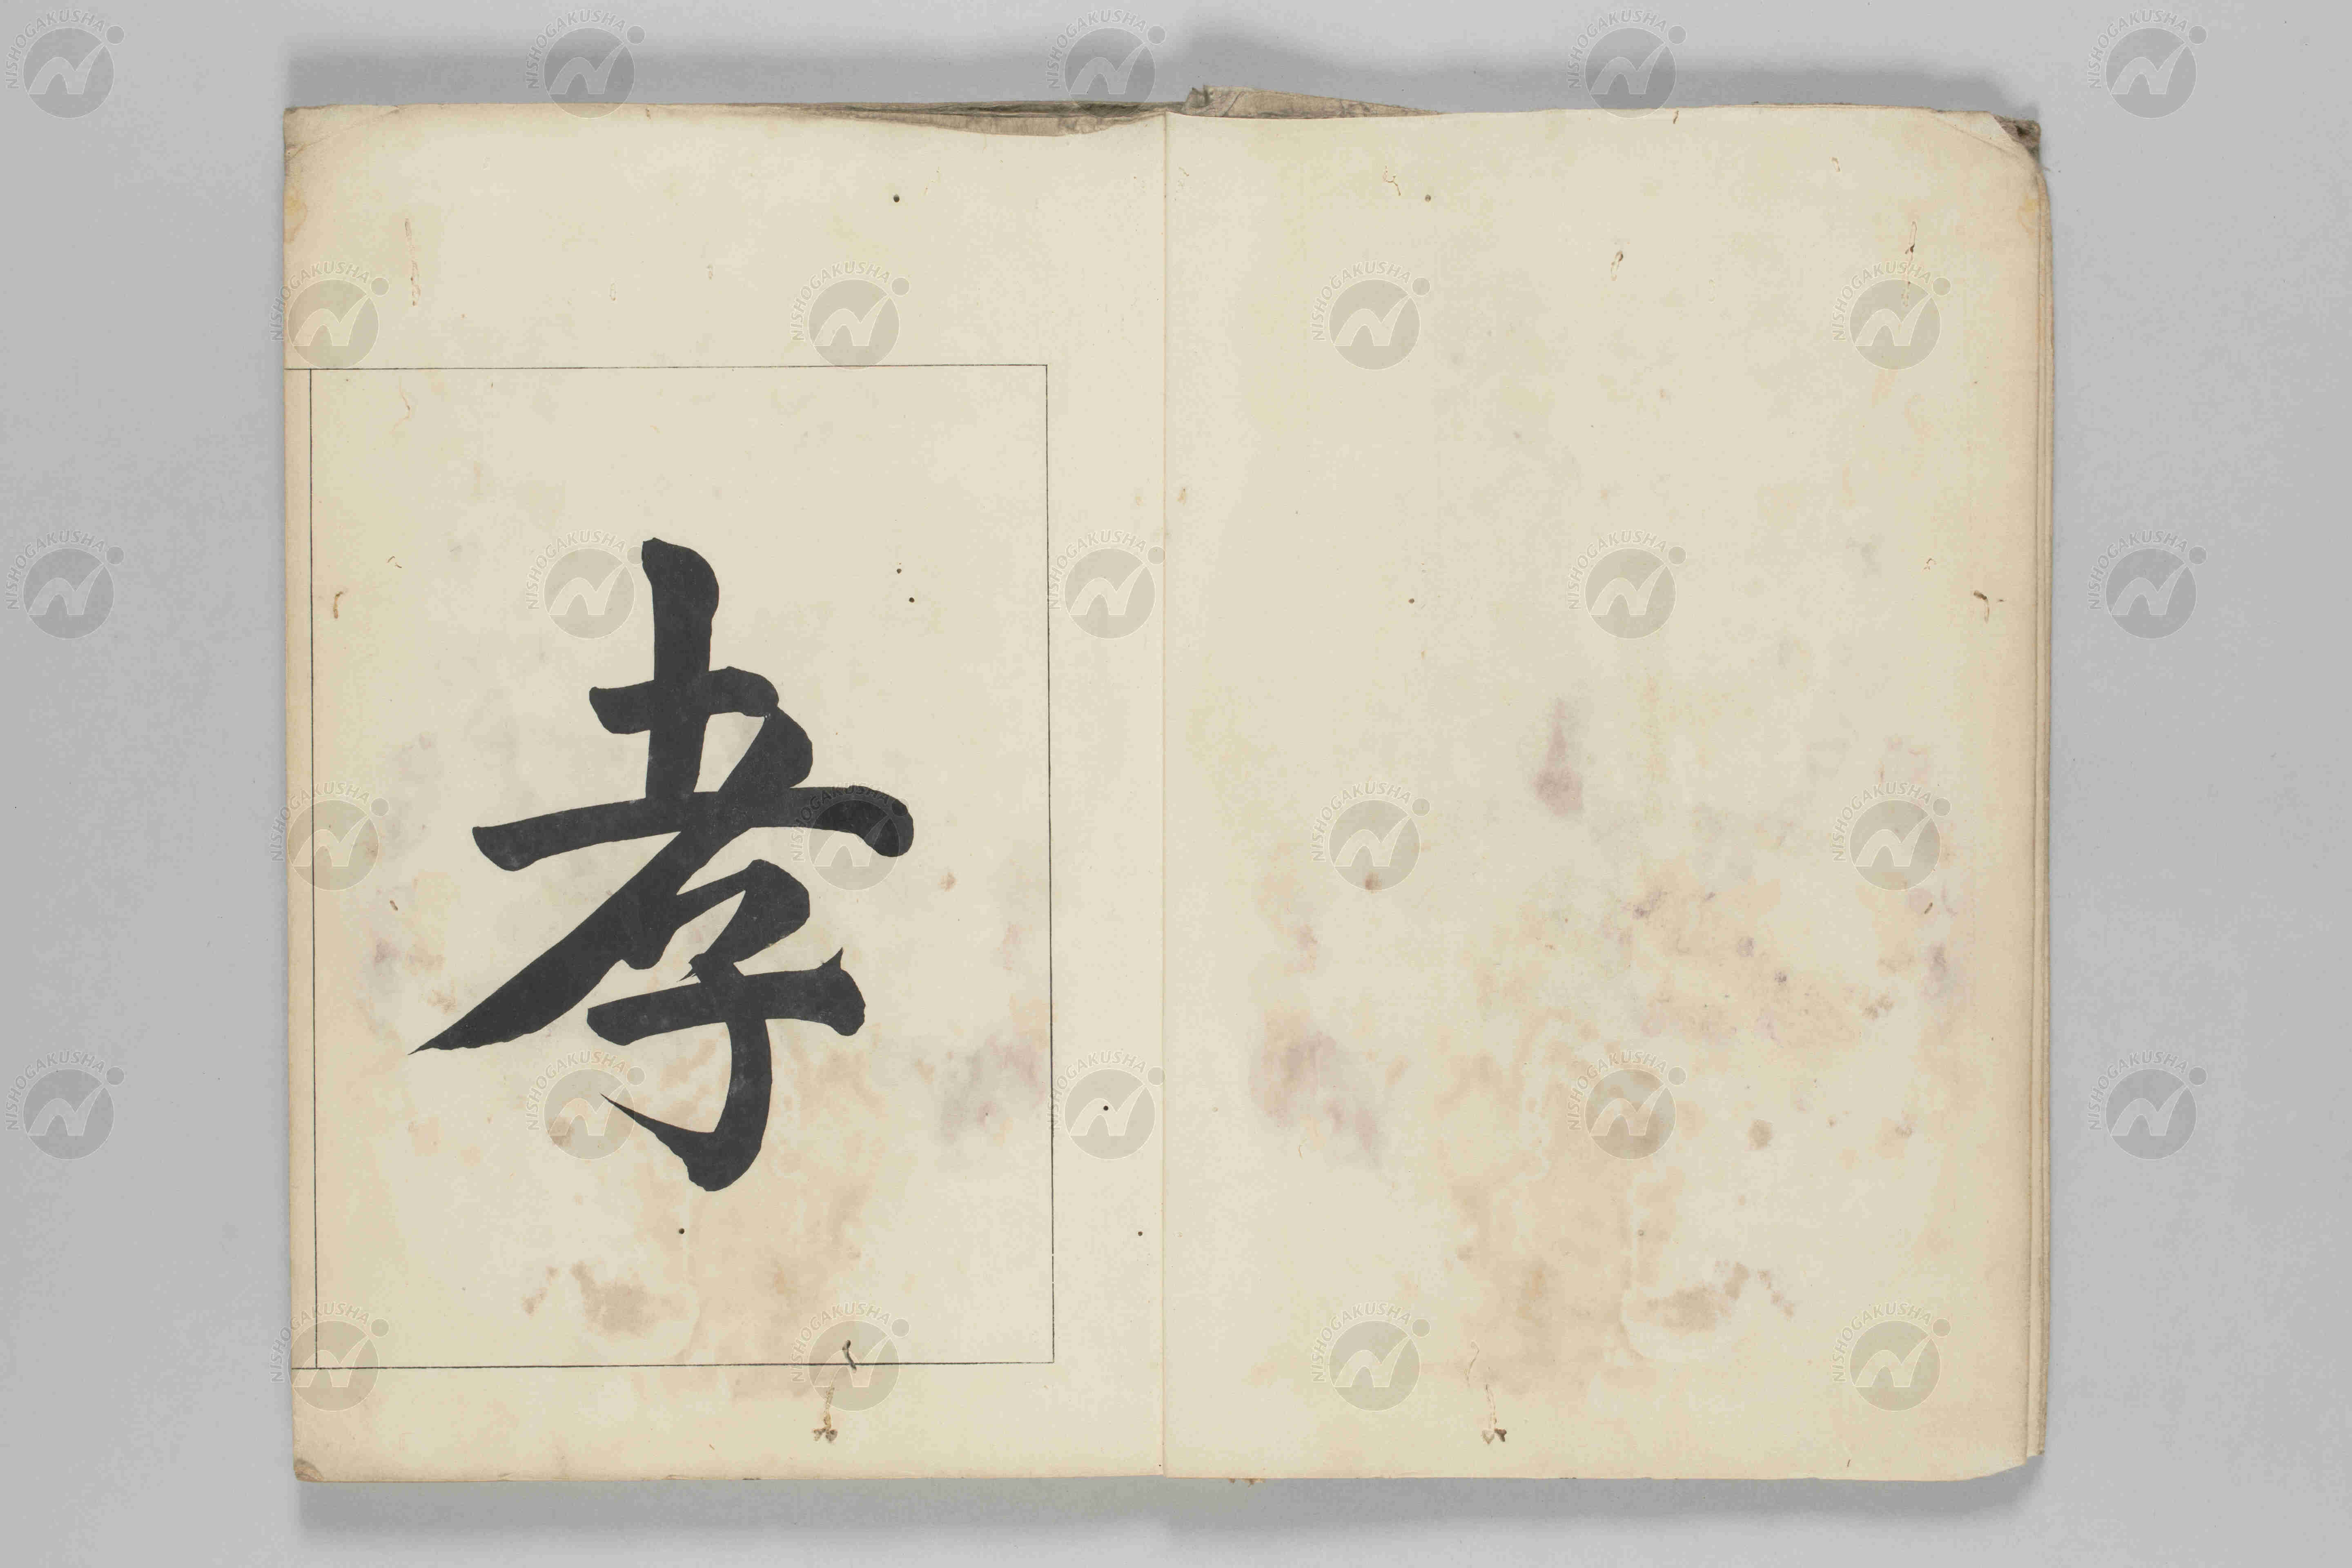 孝
NISHOGAKUSHA